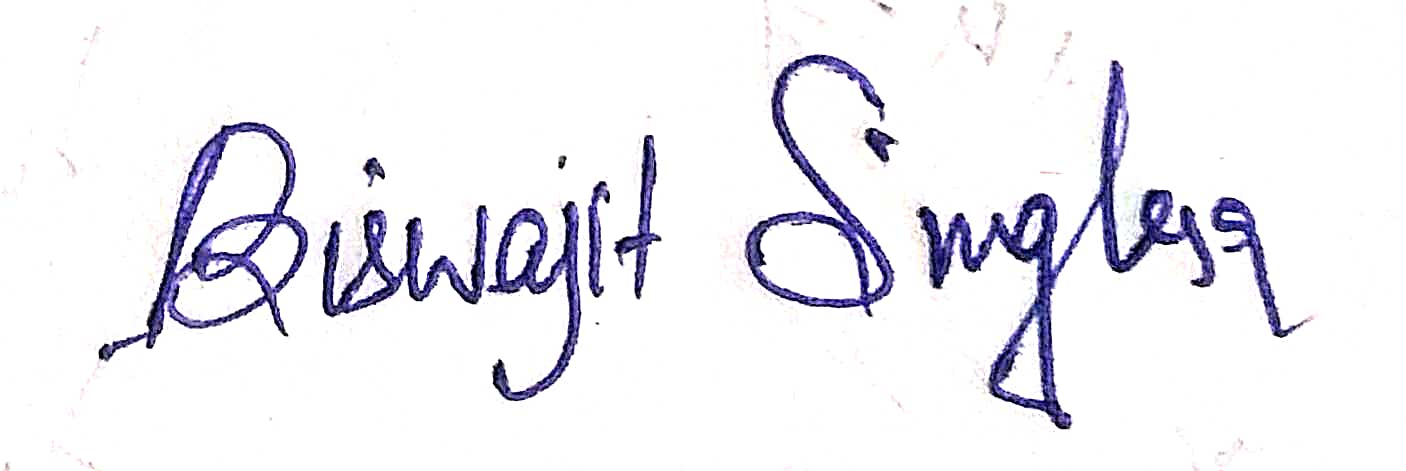 Biswajit Singha